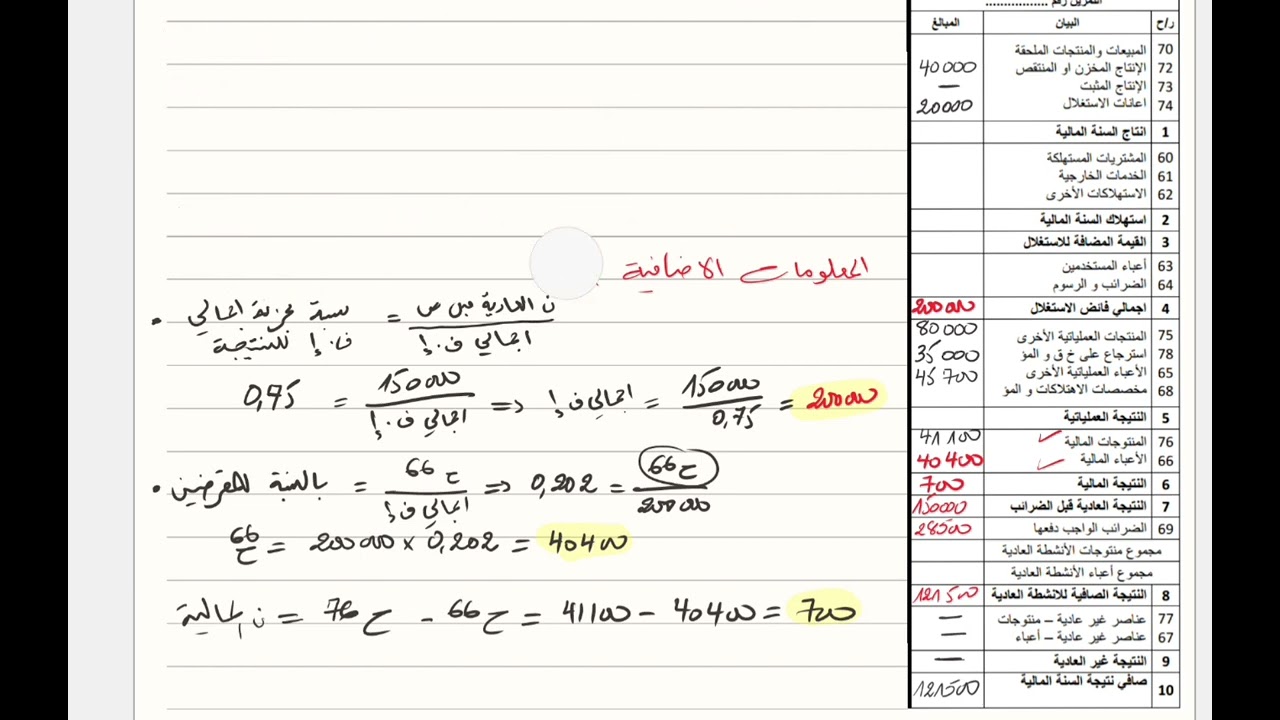 التمرين رقم ................
ر/ح البيان المبالغ
70 المبيعات والمنتجات الملحقة
72 الإنتاج المخزن او المنتقص 40000
73 الإنتاج المثبت —
74 اعانات الاستغلال 20000
1 انتاج السنة المالية
60 المشتريات المستهلكة
61 الخدمات الخارجية
62 الاستهلاكات الأخرى
2 استهلاك السنة المالية
3 القيمة المضافة للاستغلال
63 أعباء المستخدمين
64 الضرائب و الرسوم
4 اجمالي فائض الاستغلال 200000
75 المنتجات العملياتية الأخرى 80000
78 استرجاع على خ ق و المؤ 35000
65 الأعباء العملياتية الأخرى 45700
68 مخصصات الاهتلاكات و المؤ
5 النتيجة العملياتية
76 المنتوجات المالية 41100
66 الأعباء المالية 40400
6 النتيجة المالية 700
7 النتيجة العادية قبل الضرائب 150000
69 الضرائب الواجب دفعها 28500
مجموع منتوجات الأنشطة العادية
مجموع أعباء الأنشطة العادية
8 النتيجة الصافية للانشطة العادية 121500
77 عناصر غير عادية – منتوجات —
67 عناصر غير عادية – أعباء —
9 النتيجة غير العادية —
10 صافي نتيجة السنة المالية 121500
المعلومات الاضافية
• نسبة تجزئة اجمالي ف.إ للنتيجة = ن العادية قبل ض / اجمالي ف.إ
0,75 = 150000 / اجمالي ف.إ => اجمالي ف.إ = 150000 / 0,75 = 200000
• بالنسبة للمقرضين = ح 66 / اجمالي ف.إ => 0,202 = ح 66 / 200000
ح 66 = 200000 × 0,202 = 40400
ن المالية = ح 76 - ح 66 = 41100 - 40400 = 700